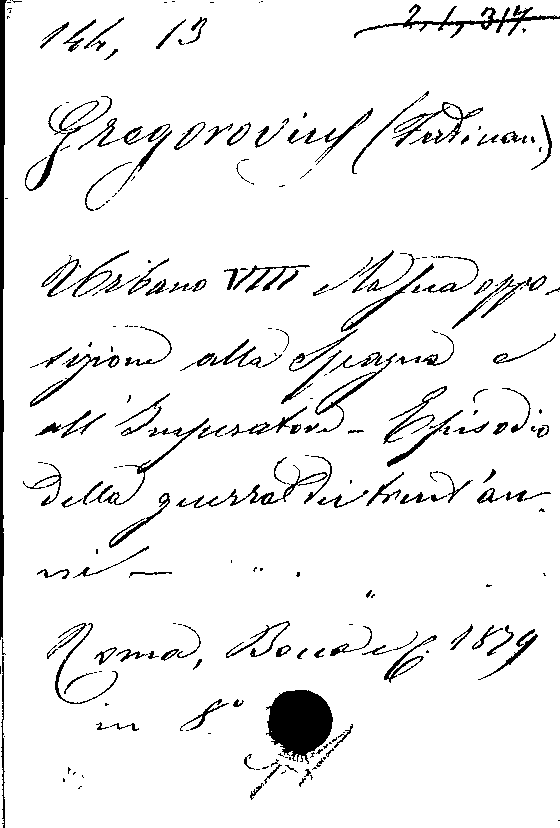 144, 13
2, 1, 317.
Gregorovius (Ferdinan.)
Urbano VIII e la sua oppo-
sizione alla Spagna e
all'Imperatore - Episodio
della guerra dei trent'an-
ni -
Roma, Bocca e C. 1879
in 8.º